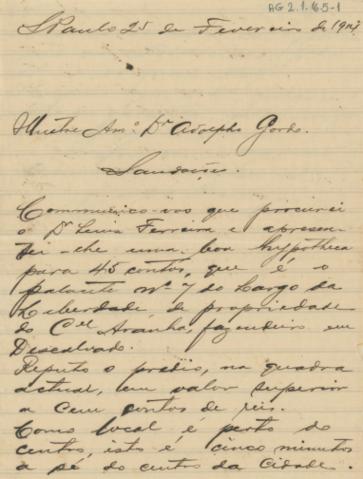 AG 2.1.65-1
S. Paulo 25 de Fevereiro de 1907
Illustre Amº. Dr Adolpho Gordo.
Saudações.
Communico-vos que procurei
o Dr Lima Ferreira e apresen-
tei-lhe uma boa hypotheca
para 45 contos, que é o
palacete Nº 7 do Largo da
Liberdade, de propriedade
do Cel Aranha, fazendeiro em
Descalvado.
Reputo o predio, na quadra
actual, em valor superior
a cem contos de reis.
Como local é perto do
centro, isto é cinco minutos
a pé do centro da Cidade.